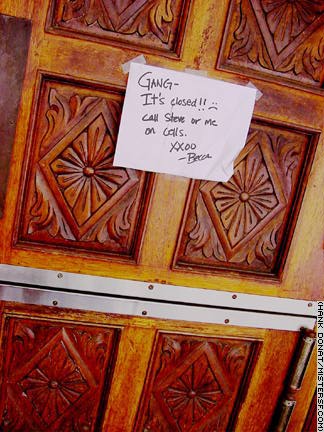 GANG-
It's closed!! :(
call Steve or me
on cells.
XXOO
-Becca
(HANK DONAT/MISTERSF.COM)